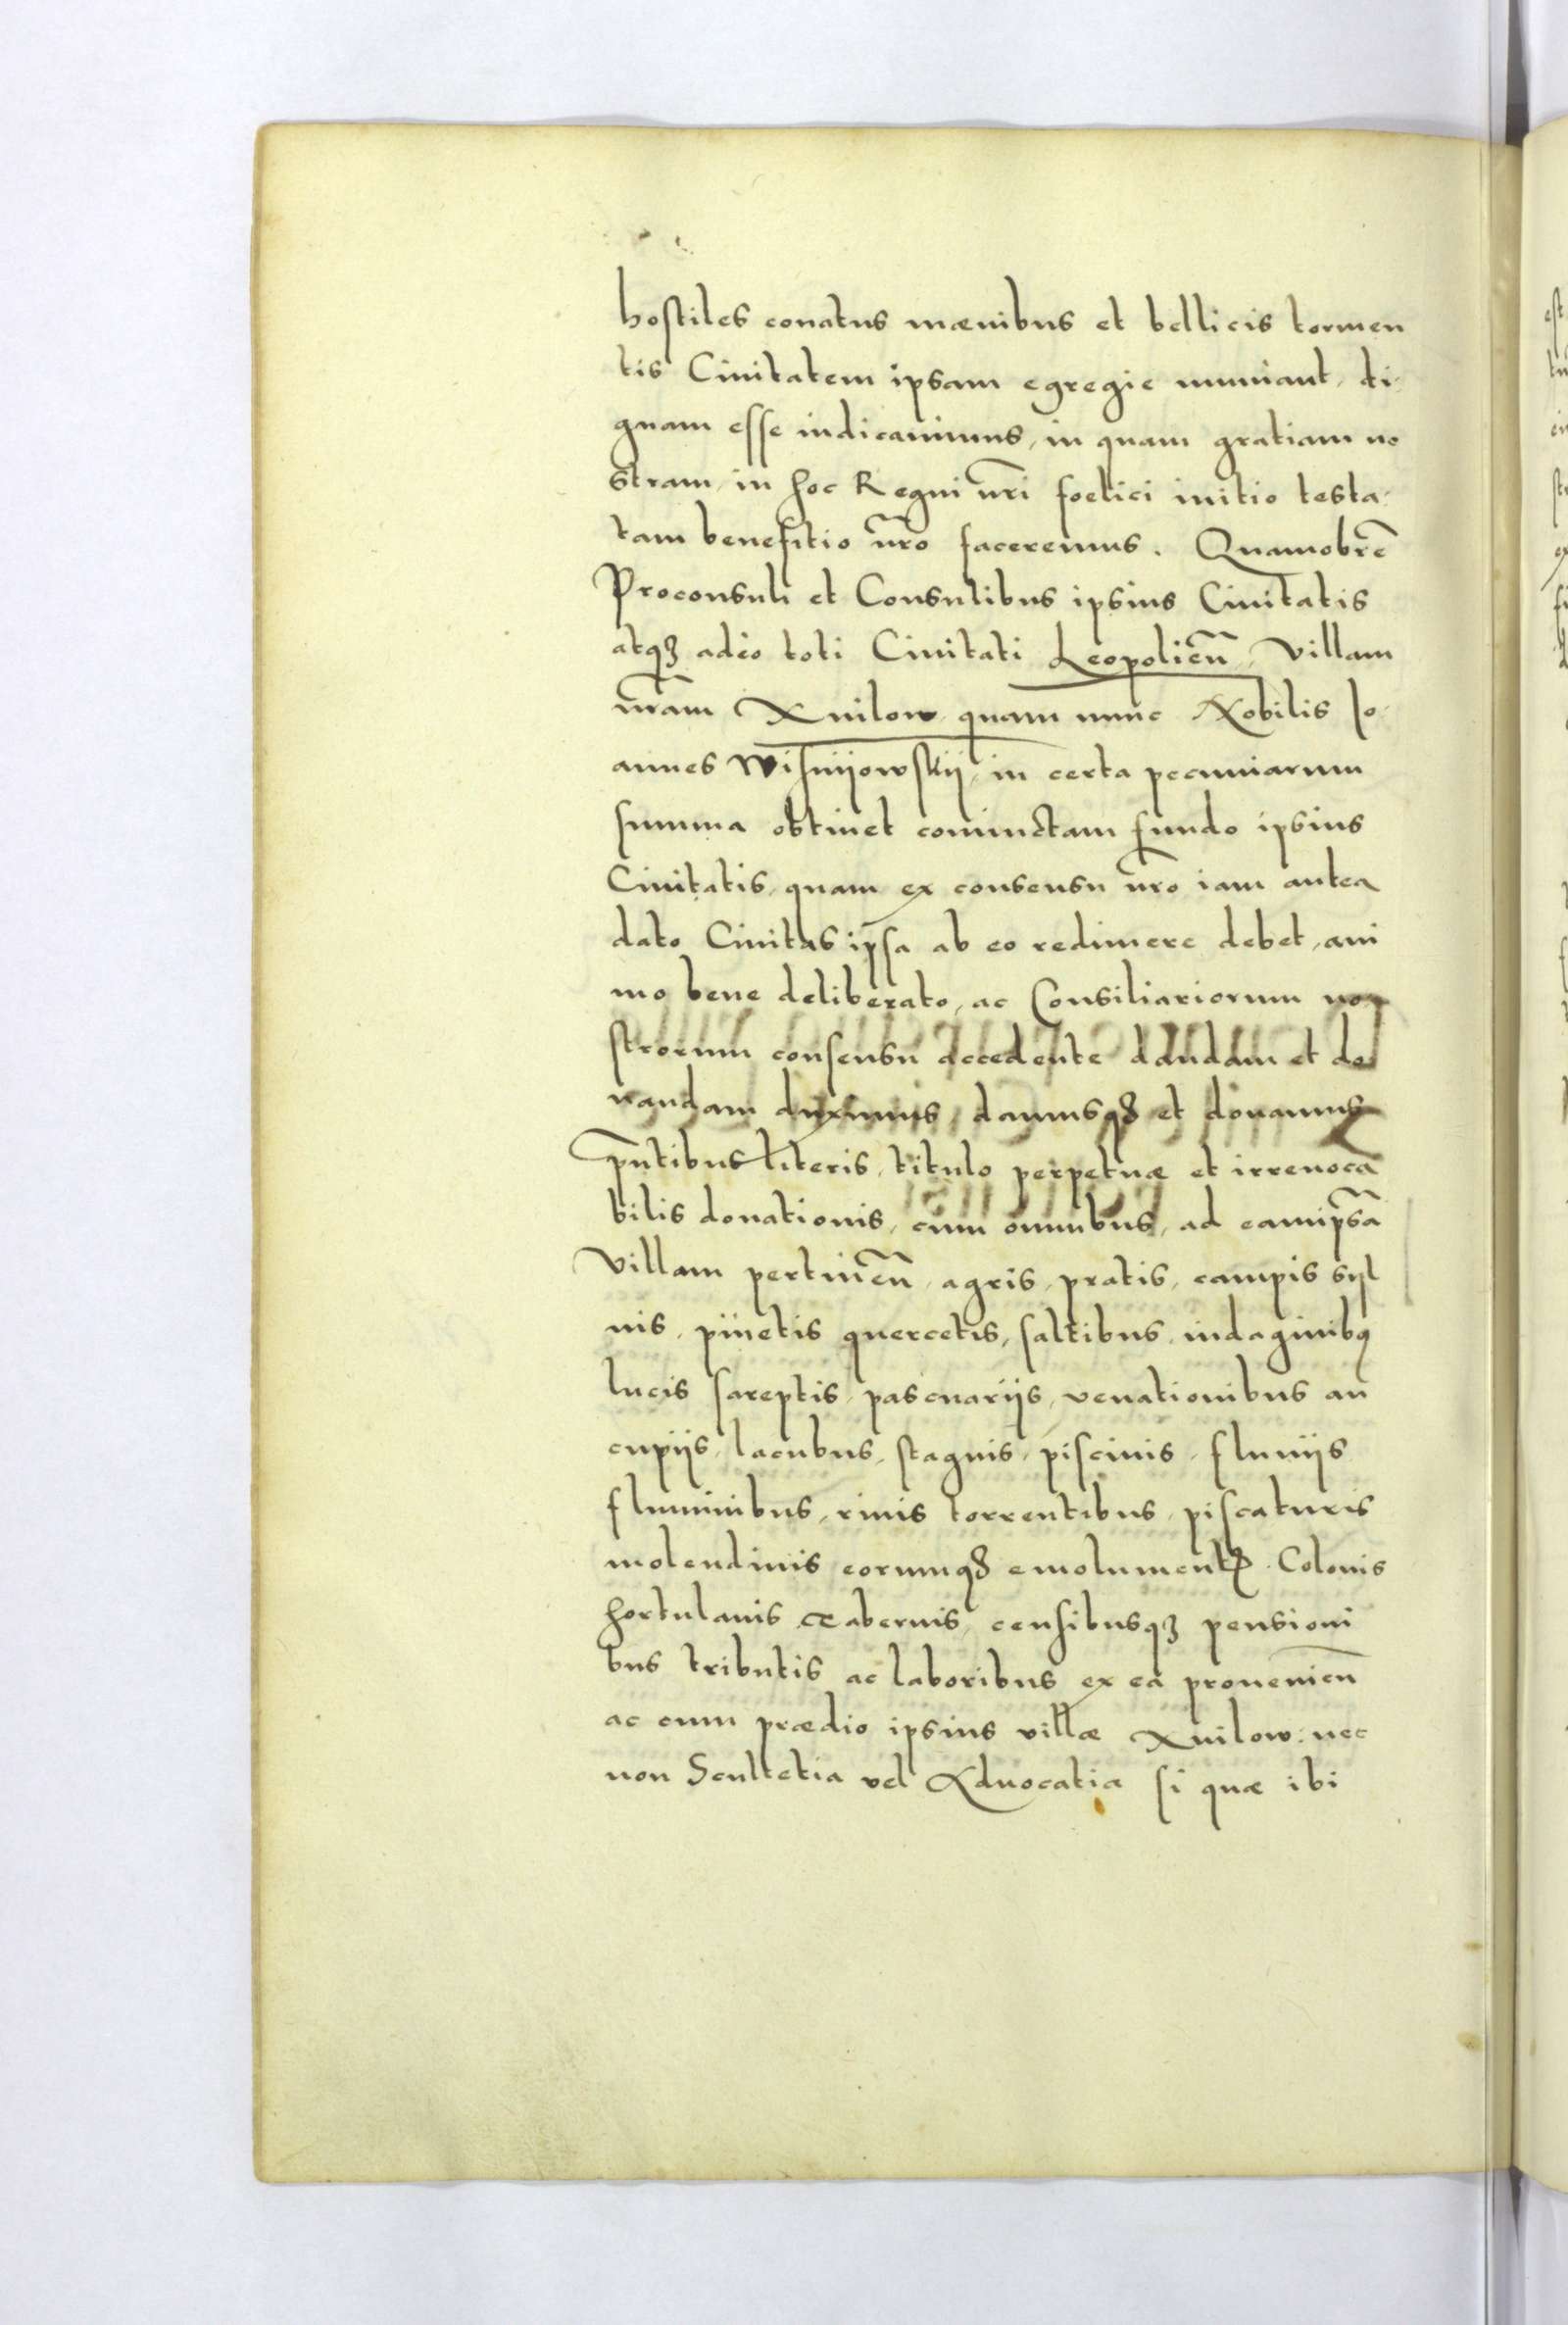 hostiles conatus mænibus et bellicis tormen
tis Ciuitatem ipsam egregie muniant, di-
gnam esse iudicauimus, in quam gratiam no
stram, in hoc Regni nr̃i foelici initio testa-
tam benefitio nr̃o faceremus. Quamobrẽ
Proconsuli et Consulibus ipsius Ciuitatis
atqꝫ adeo toti Ciuitati Leopolień, Villam
nr̃am Xuilow quam nunc Nobilis Io-
annes Wisnijowskij, in certa pecuniarum
summa obtinet coniunctam fundo ipsius
Ciuitatis, quam ex consensu nr̃o iam antea
dato Ciuitas ipsa ab eo redimere debet, ani
mo bene deliberato, ac Consiliariorum no-
strorum consensu accedente dandam et do
nandam duximus, damusqꝫ et donamus
pñtibus literis, titulo perpetuæ et irreuoca
bilis donationis, cum omnibus, ad eamipsã
Villam pertineñ, agris, pratis, campis syl
uis, pinetis quercetis, saltibus, indaginibꝯ
lucis sareptis, pascuariis, venationibus au
cupijs, lacubus, stagnis, piscinis, fluuijs
fluminibus, riuis torrentibus, piscaturis
molendinis eorumqꝫ emolumentꝭ. Colonis
hortulanis Tabernis, censibusqꝫ pensioni
bus tributis ac laboribus ex ea prouenień
ac cum prædio ipsius villæ Xuilow: nec
non Scultetia vel Aduocatia si quæ ibi